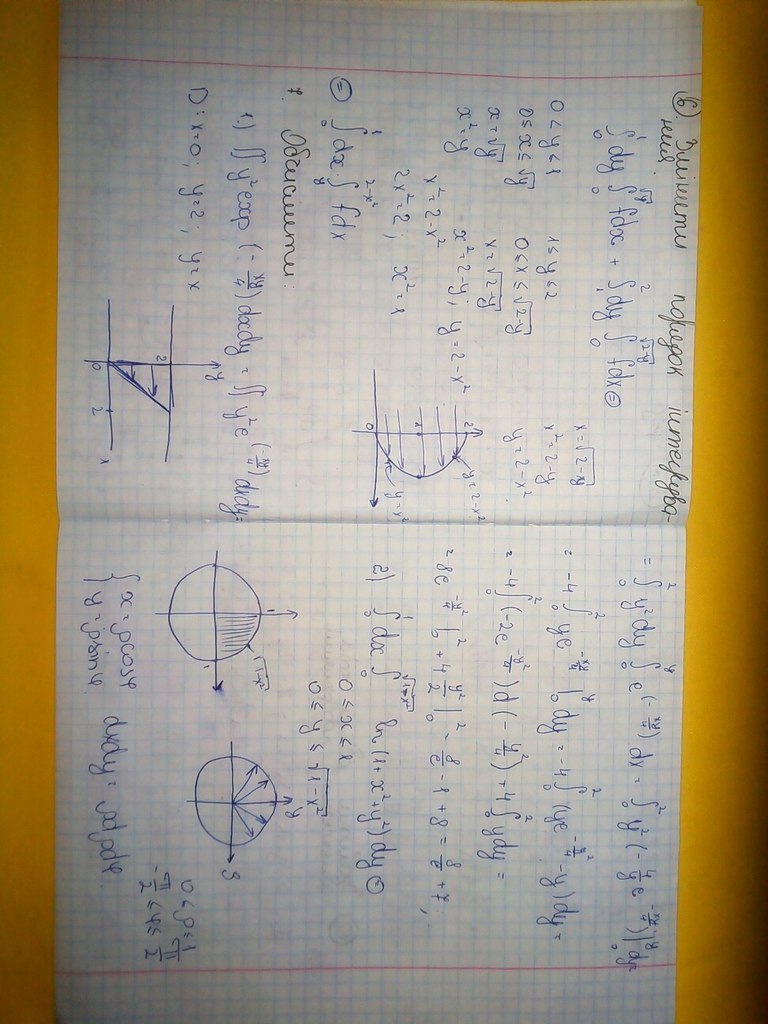 6. Змінити порядок інтегрува-
ння:
∫₀¹ dy ∫₀^√y f dx + ∫₁² dy ∫₀^√(2-y) f dx ⊜
0 ≤ y ≤ 1    1 ≤ y ≤ 2    x = √(2-y)
0 ≤ x ≤ √y    0 ≤ x ≤ √(2-y)    x² = 2-y
x = √y    x = √(2-y)    y = 2-x²
x² = y    x² = 2-y; y = 2-x²
x² = 2-x²
2x² = 2; x² = 1
2 1 0 y = 2-x² y = x²
⊜ ∫₀¹ dx · ∫_y^(2-x²) f dx
7. Обчислити:
1.) ∬ y² exp(-xy/4) dxdy = ∬ y² e^(-xy/4) dxdy =
D: x=0; y=2; y=x
y 2 0 2 x
= ∫₀² y² dy ∫₀^y e^(-xy/4) dx = ∫₀² y² (-4/y e^(-xy/4))|₀^y dy =
= -4 ∫₀² y e^(-xy/4)|₀^y dy = -4 ∫₀² (y e^(-y²/4) - y) dy =
= -4 ∫₀² (-2e^(-y²/4)) d(-y²/4) + 4 ∫₀² y dy =
= 8e^(-y²/4)|₀² + 4 y²/2|₀² = 8/e - 1 + 8 = 8/e + 7;
2) ∫₀¹ dx ∫₀^√(1-x²) ln(1+x²+y²) dy ⊜
0 ≤ x ≤ 1
0 ≤ y ≤ √(1-x²)
1 √(1-x²) 1
y
0 ≤ ρ ≤ 1
-π/2 ≤ φ ≤ π/2
{ x = ρcosφ
y = ρsinφ    dxdy = ρdρdφ.